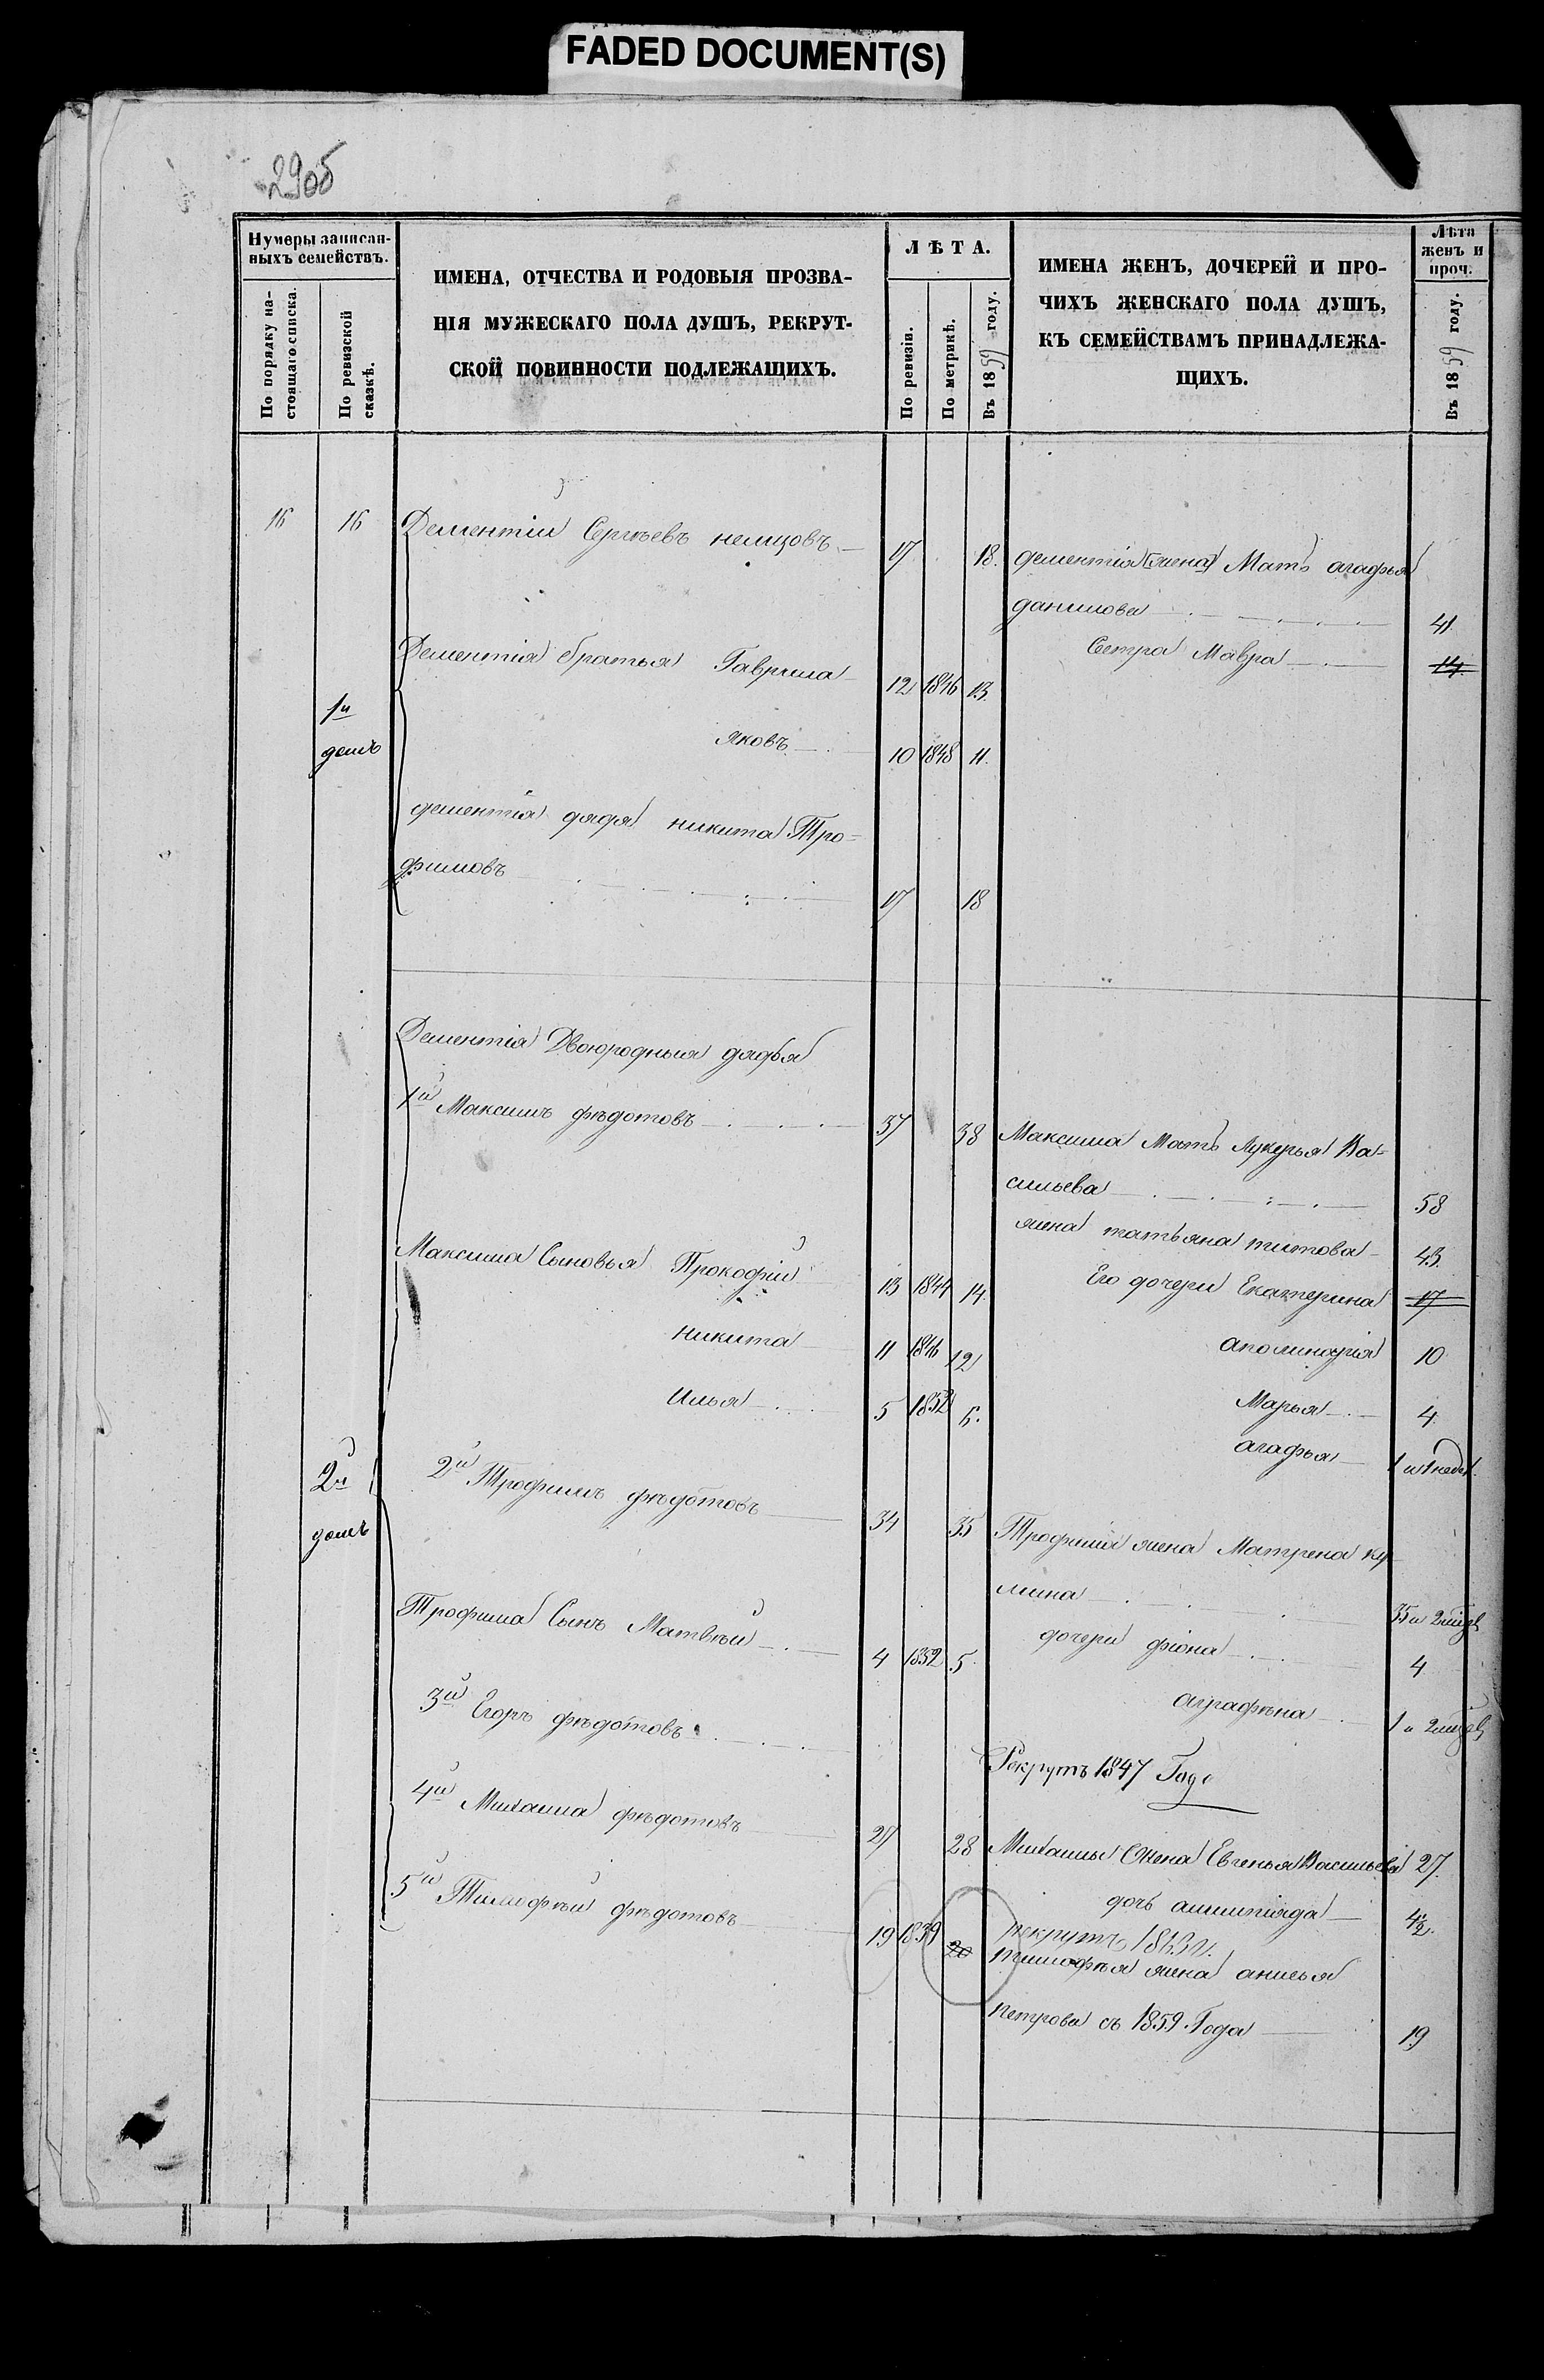 FADED DOCUMENT(S)
29об
Нумеры записан-
ныхъ семействъ.
По порядку на-
стоящаго списка.
По ревизской
сказкѣ.
ИМЕНА, ОТЧЕСТВА И РОДОВЫЯ ПРОЗВА-
НІЯ МУЖЕСКАГО ПОЛА ДУШЪ, РЕКРУТ-
СКОЙ ПОВИННОСТИ ПОДЛЕЖАЩИХЪ.
ЛѢТА.
По ревизіи.
По метрикѣ.
Въ 1859 году.
ИМЕНА ЖЕНЪ, ДОЧЕРЕЙ И ПРО-
ЧИХЪ ЖЕНСКАГО ПОЛА ДУШЪ,
КЪ СЕМЕЙСТВАМЪ ПРИНАДЛЕЖА-
ЩИХЪ.
Лѣта
женъ и
проч.
Въ 1859 году.
16 16 Дементій Сергѣевъ немцовъ 17 18. дементія [жена] Мать агафья
данилова 41
Дементія братья Гаврила 12 1846 13. Сестра Мавра 14
1й
домъ
яковъ 10 1848 11.
дементія дядя никита Тро-
фимовъ 17 18
Дементія Двоюродныя дядья
1й Максимъ фѣдотовъ 37 38 Максима Мать Лукерья Ва-
сильева 58
жена татьяна титова 43.
Максима Сыновья Прокофій 13 1844 14. Его дочери Екатерина 17
никита 11 1846 12 аполинарія 10
Илья 5 1852 6. Марья 4
агафья 1 и 1 недѣл.
2й
домъ
2й Трофимъ фѣдотовъ 34 35 Трофима жена Матрена
мина 35 и 2
Трофима Сынъ Матвѣй 4 1852 5. дочери фіона 4
аграфѣна 1 и 2
3й Егоръ фѣдотовъ Рекрутъ 1847 Года
4й Михаила фѣдотовъ 27 28 Михаилы Жена Евгенья Васильева 27.
дочь 4½.
5й Тимофѣй фѣдотовъ 19 1839 20 рекрутъ 1863 г.
тимофѣя жена анисья
петрова съ 1859 Года 19